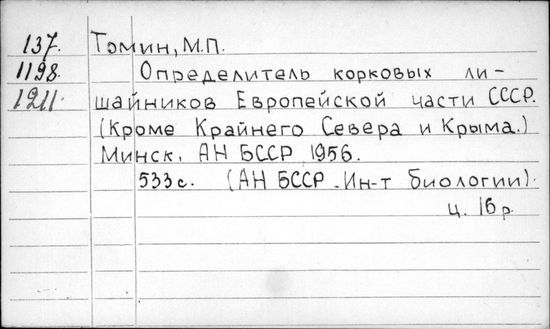 137. Томин, М.П.
1198. Определитель корковых ли-
1211. шайников Европейской части СССР.
(Кроме Крайнего Севера и Крыма.)
Минск, АН БССР, 1956.
533 с. (АН БССР. Ин-т биологии).
ц. 16 р.